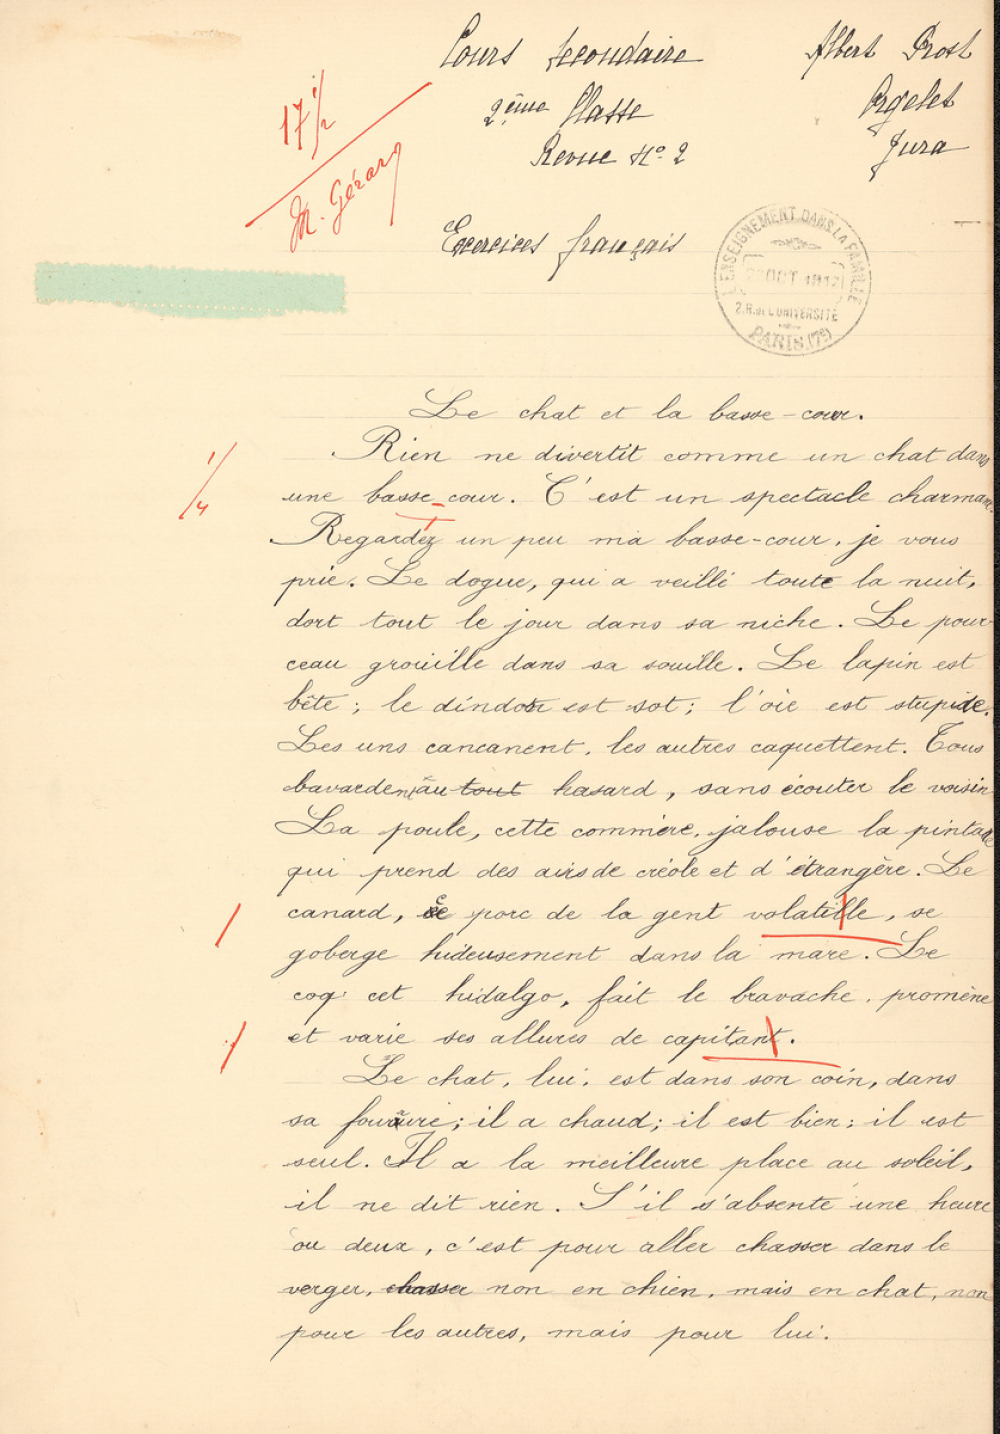 Cours secondaire
Albert Prost
2ème Classe
Orgelet
Revue No 2
Jura
17 1/2
M. Gérard
Exercices français
L'ENSEIGNEMENT DANS LA FAMILLE
OCT 1912
2.R. de L'UNIVERSITÉ
PARIS (7e)
Le chat et la basse-cour.
Rien ne divertit comme un chat dans
1/4
une basse-cour. C'est un spectacle charmant
Regardez un peu ma basse-cour, je vous
prie. Le dogue, qui a veillé toute la nuit,
dort tout le jour dans sa niche. Le pour-
ceau grouille dans sa souille. Le lapin est
bête ; le dindon est sot ; l'oie est stupide.
Les uns cancanent, les autres caquettent. Tous
bavardent au tout hasard, sans écouter le voisin
La poule, cette commère, jalouse la pintade
qui prend des airs de créole et d'étrangère. Le
canard, ce porc de la gent volatille, se
goberge hideusement dans la mare. Le
coq cet hidalgo, fait le bravache, promène
et varie ses allures de capitant.
Le chat, lui, est dans son coin, dans
sa fourrure ; il a chaud ; il est bien ; il est
seul. Il a la meilleure place au soleil,
il ne dit rien. S'il s'absente une heure
ou deux, c'est pour aller chasser dans le
verger, chasser non en chien, mais en chat, non
pour les autres, mais pour lui.